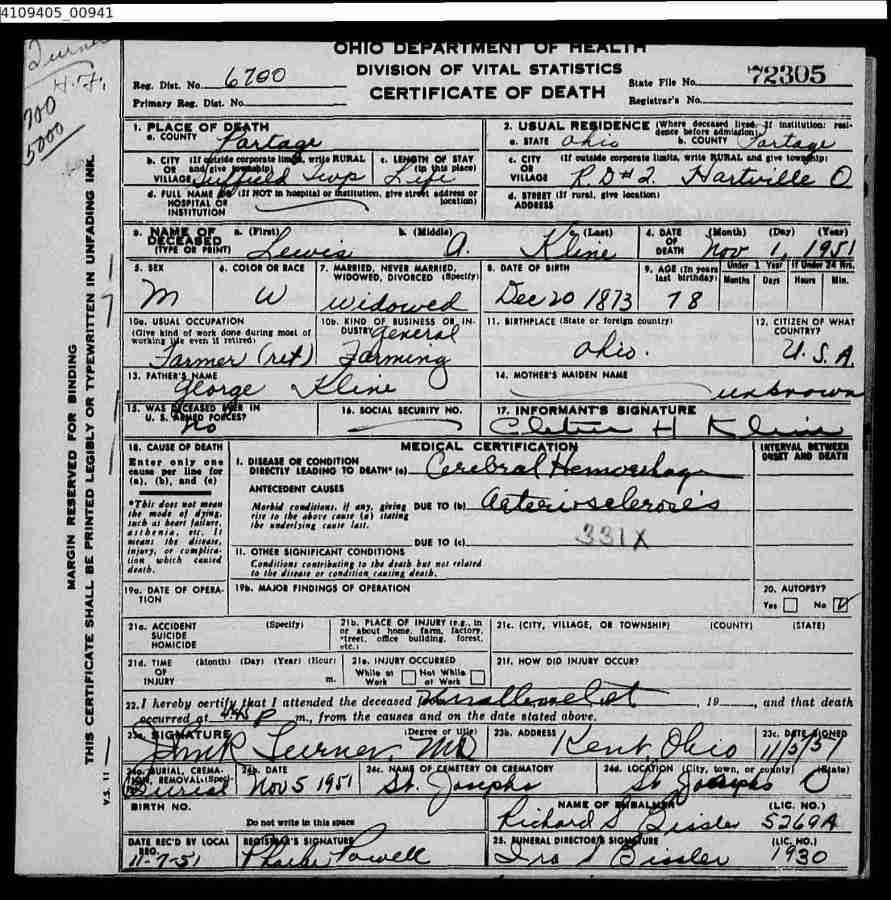 4109405_00941
Turner
H.F.
700
5000
OHIO DEPARTMENT OF HEALTH
DIVISION OF VITAL STATISTICS
CERTIFICATE OF DEATH
Reg. Dist. No. 6700
Primary Reg. Dist. No.
State File No. 72305
Registrar's No.
1. PLACE OF DEATH
a. COUNTY Portage
b. CITY (If outside corporate limits, write RURAL
OR and give township)
VILLAGE Suffield Twp
c. LENGTH OF STAY
(in this place)
Life
d. FULL NAME OF (If NOT in hospital or institution, give street address or
HOSPITAL OR location)
INSTITUTION
2. USUAL RESIDENCE (Where deceased lived. If institution: resi-
dence before admission)
a. STATE Ohio b. COUNTY Portage
c. CITY (If outside corporate limits, write RURAL and give township)
OR
VILLAGE R.D #2. Hartville O
d. STREET (If rural, give location)
ADDRESS
3. NAME OF a. (First) b. (Middle) c. (Last)
DECEASED
(TYPE OR PRINT) Lewis A. Kline
4. DATE (Month) (Day) (Year)
OF
DEATH Nov 1, 1951
5. SEX
M
6. COLOR OR RACE
W
7. MARRIED, NEVER MARRIED,
WIDOWED, DIVORCED (Specify)
Widowed
8. DATE OF BIRTH
Dec 20 1873
9. AGE (In years
last birthday)
78
Under 1 Year If Under 24 Hrs.
Months Days Hours Min.
10a. USUAL OCCUPATION
(Give kind of work done during most of
working life even if retired)
Farmer (ret)
10b. KIND OF BUSINESS OR IN-
DUSTRY General
Farming
11. BIRTHPLACE (State or foreign country)
Ohio.
12. CITIZEN OF WHAT
COUNTRY?
U.S.A.
13. FATHER'S NAME
George Kline
14. MOTHER'S MAIDEN NAME
unknown
15. WAS DECEASED EVER IN
U. S. ARMED FORCES?
No
16. SOCIAL SECURITY NO.
17. INFORMANT'S SIGNATURE
H Kline
18. CAUSE OF DEATH
Enter only one
cause per line for
(a), (b), and (c)
*This does not mean
the mode of dying,
such as heart failure,
asthenia, etc. It
means the disease,
injury, or complica-
tion which caused
death.
MEDICAL CERTIFICATION
I. DISEASE OR CONDITION
DIRECTLY LEADING TO DEATH* (a) Cerebral Hemorrhage
ANTECEDENT CAUSES
Morbid conditions, if any, giving DUE TO (b) Arteriosclerosis
rise to the above cause (a) stating
the underlying cause last.
DUE TO (c)
331X
II. OTHER SIGNIFICANT CONDITIONS
Conditions contributing to the death but not related
to the disease or condition causing death.
INTERVAL BETWEEN
ONSET AND DEATH
19a. DATE OF OPERA-
TION
19b. MAJOR FINDINGS OF OPERATION
20. AUTOPSY?
Yes No
21a. ACCIDENT (Specify)
SUICIDE
HOMICIDE
21b. PLACE OF INJURY (e.g., in
or about home, farm, factory,
street, office building, forest,
etc.)
21c. (CITY, VILLAGE, OR TOWNSHIP) (COUNTY) (STATE)
21d. TIME (Month) (Day) (Year) (Hour)
OF
INJURY m.
21e. INJURY OCCURRED
While at Work Not While at Work
21f. HOW DID INJURY OCCUR?
22. I hereby certify that I attended the deceased , 19 , and that death
occurred at 4:45 P m., from the causes and on the date stated above.
23a. SIGNATURE (Degree or title)
Turner, MD
23b. ADDRESS
Kent, Ohio
23c. DATE SIGNED
11/5/51
24a. BURIAL, CREMA-
TION, REMOVAL (Specify)
Burial
24b. DATE
Nov 5 1951
24c. NAME OF CEMETERY OR CREMATORY
St. Josephs
24d. LOCATION (City, town, or county) (State)
St. Josephs O
BIRTH NO.
Do not write in this space
NAME OF EMBALMER (LIC. NO.)
Richard S Bissler 5269A
DATE REC'D BY LOCAL
REG.
11-7-51
REGISTRAR'S SIGNATURE
Powell
25. FUNERAL DIRECTOR'S SIGNATURE (LIC. NO.)
S Bissler 1930
MARGIN RESERVED FOR BINDING
THIS CERTIFICATE SHALL BE PRINTED LEGIBLY OR TYPEWRITTEN IN UNFADING INK.
V.S. 11